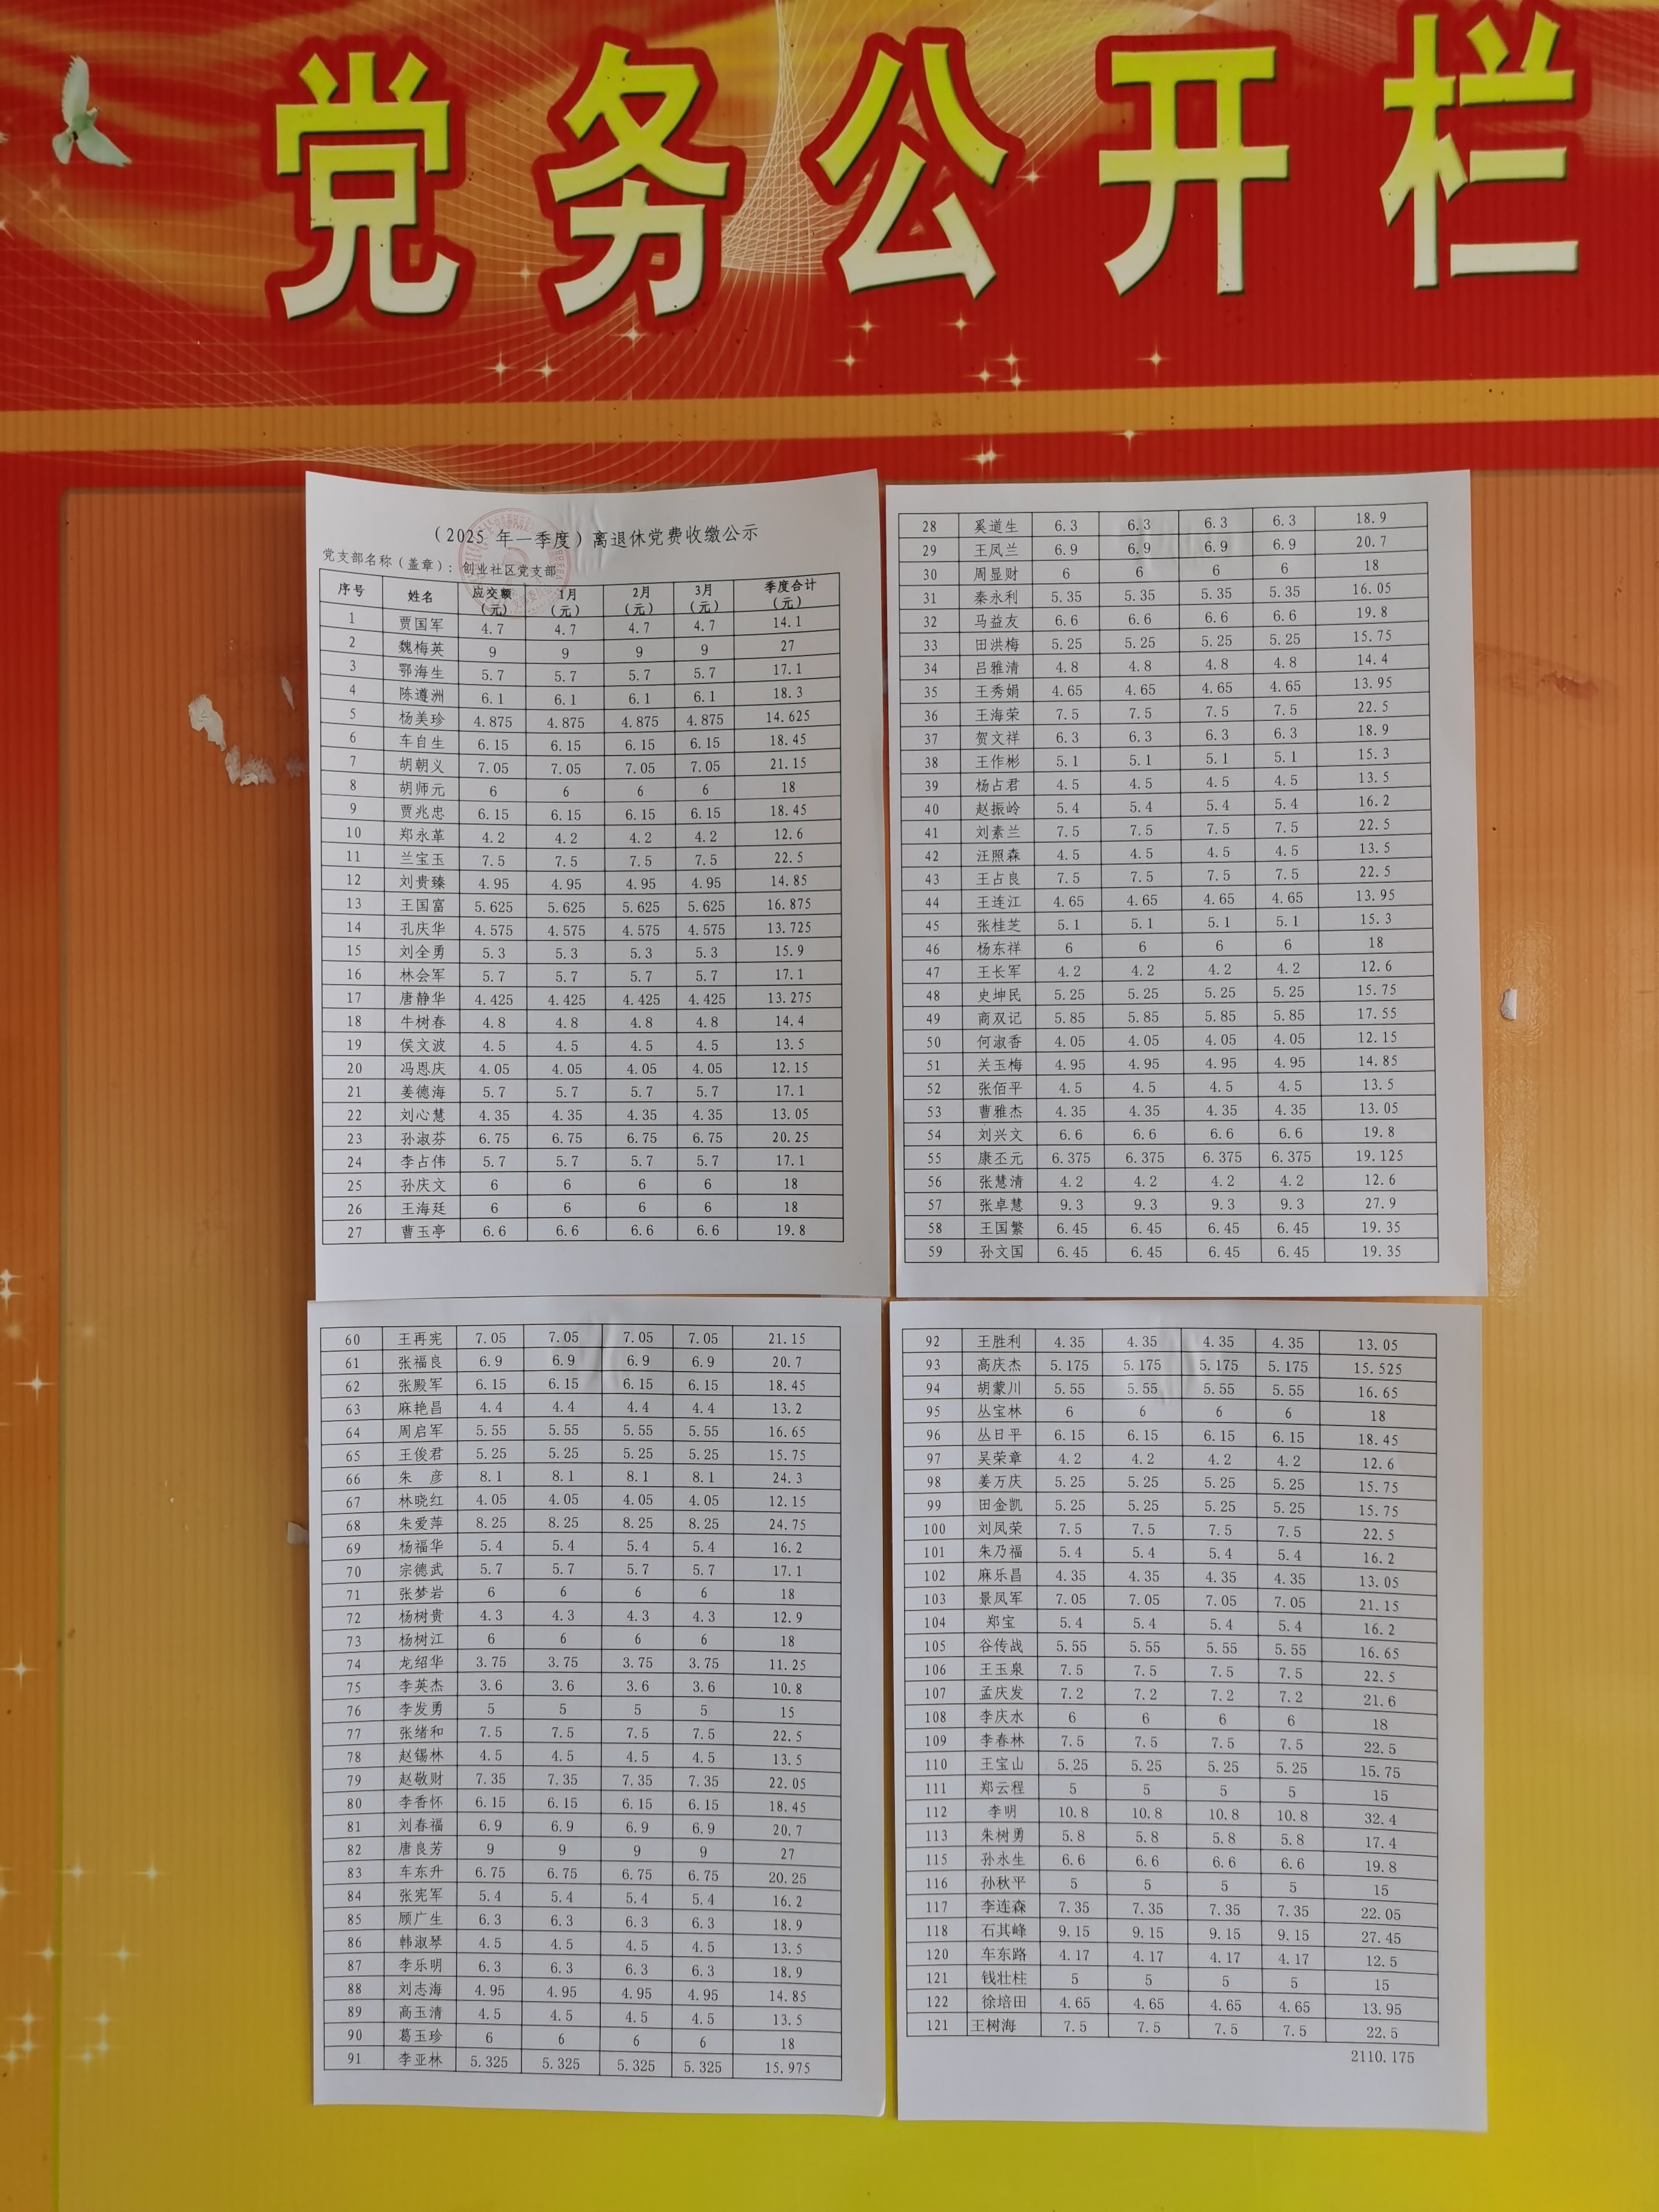 党务公开栏
（2025 年一季度）离退休党费收缴公示
党支部名称（盖章）：创业社区党支部
序号 姓名 应交额（元） 1月（元） 2月（元） 3月（元） 季度合计（元）
1 贾国军 4.7 4.7 4.7 4.7 14.1
2 魏梅英 9 9 9 9 27
3 鄂海生 5.7 5.7 5.7 5.7 17.1
4 陈遵洲 6.1 6.1 6.1 6.1 18.3
5 杨美珍 4.875 4.875 4.875 4.875 14.625
6 车自生 6.15 6.15 6.15 6.15 18.45
7 胡朝义 7.05 7.05 7.05 7.05 21.15
8 胡师元 6 6 6 6 18
9 贾兆忠 6.15 6.15 6.15 6.15 18.45
10 郑永革 4.2 4.2 4.2 4.2 12.6
11 兰宝玉 7.5 7.5 7.5 7.5 22.5
12 刘贵臻 4.95 4.95 4.95 4.95 14.85
13 王国富 5.625 5.625 5.625 5.625 16.875
14 孔庆华 4.575 4.575 4.575 4.575 13.725
15 刘全勇 5.3 5.3 5.3 5.3 15.9
16 林会军 5.7 5.7 5.7 5.7 17.1
17 唐静华 4.425 4.425 4.425 4.425 13.275
18 牛树春 4.8 4.8 4.8 4.8 14.4
19 侯文波 4.5 4.5 4.5 4.5 13.5
20 冯恩庆 4.05 4.05 4.05 4.05 12.15
21 姜德海 5.7 5.7 5.7 5.7 17.1
22 刘心慧 4.35 4.35 4.35 4.35 13.05
23 孙淑芬 6.75 6.75 6.75 6.75 20.25
24 李占伟 5.7 5.7 5.7 5.7 17.1
25 孙庆文 6 6 6 6 18
26 王海廷 6 6 6 6 18
27 曹玉亭 6.6 6.6 6.6 6.6 19.8
28 奚道生 6.3 6.3 6.3 6.3 18.9
29 王凤兰 6.9 6.9 6.9 6.9 20.7
30 周显财 6 6 6 6 18
31 秦永利 5.35 5.35 5.35 5.35 16.05
32 马益友 6.6 6.6 6.6 6.6 19.8
33 田洪梅 5.25 5.25 5.25 5.25 15.75
34 吕雅清 4.8 4.8 4.8 4.8 14.4
35 王秀娟 4.65 4.65 4.65 4.65 13.95
36 王海荣 7.5 7.5 7.5 7.5 22.5
37 贺文祥 6.3 6.3 6.3 6.3 18.9
38 王作彬 5.1 5.1 5.1 5.1 15.3
39 杨占君 4.5 4.5 4.5 4.5 13.5
40 赵振岭 5.4 5.4 5.4 5.4 16.2
41 刘素兰 7.5 7.5 7.5 7.5 22.5
42 汪照森 4.5 4.5 4.5 4.5 13.5
43 王占良 7.5 7.5 7.5 7.5 22.5
44 王连江 4.65 4.65 4.65 4.65 13.95
45 张桂芝 5.1 5.1 5.1 5.1 15.3
46 杨东祥 6 6 6 6 18
47 王长军 4.2 4.2 4.2 4.2 12.6
48 史坤民 5.25 5.25 5.25 5.25 15.75
49 商双记 5.85 5.85 5.85 5.85 17.55
50 何淑香 4.05 4.05 4.05 4.05 12.15
51 关玉梅 4.95 4.95 4.95 4.95 14.85
52 张佰平 4.5 4.5 4.5 4.5 13.5
53 曹雅杰 4.35 4.35 4.35 4.35 13.05
54 刘兴文 6.6 6.6 6.6 6.6 19.8
55 康丕元 6.375 6.375 6.375 6.375 19.125
56 张慧清 4.2 4.2 4.2 4.2 12.6
57 张卓慧 9.3 9.3 9.3 9.3 27.9
58 王国繁 6.45 6.45 6.45 6.45 19.35
59 孙文国 6.45 6.45 6.45 6.45 19.35
60 王再宪 7.05 7.05 7.05 7.05 21.15
61 张福良 6.9 6.9 6.9 6.9 20.7
62 张殿军 6.15 6.15 6.15 6.15 18.45
63 麻艳昌 4.4 4.4 4.4 4.4 13.2
64 周启军 5.55 5.55 5.55 5.55 16.65
65 王俊君 5.25 5.25 5.25 5.25 15.75
66 朱 彦 8.1 8.1 8.1 8.1 24.3
67 林晓红 4.05 4.05 4.05 4.05 12.15
68 朱爱萍 8.25 8.25 8.25 8.25 24.75
69 杨福华 5.4 5.4 5.4 5.4 16.2
70 宗德武 5.7 5.7 5.7 5.7 17.1
71 张梦岩 6 6 6 6 18
72 杨树贵 4.3 4.3 4.3 4.3 12.9
73 杨树江 6 6 6 6 18
74 龙绍华 3.75 3.75 3.75 3.75 11.25
75 李英杰 3.6 3.6 3.6 3.6 10.8
76 李发勇 5 5 5 5 15
77 张绪和 7.5 7.5 7.5 7.5 22.5
78 赵锡林 4.5 4.5 4.5 4.5 13.5
79 赵敬财 7.35 7.35 7.35 7.35 22.05
80 李香怀 6.15 6.15 6.15 6.15 18.45
81 刘春福 6.9 6.9 6.9 6.9 20.7
82 唐良芳 9 9 9 9 27
83 车东升 6.75 6.75 6.75 6.75 20.25
84 张宪军 5.4 5.4 5.4 5.4 16.2
85 顾广生 6.3 6.3 6.3 6.3 18.9
86 韩淑琴 4.5 4.5 4.5 4.5 13.5
87 李乐明 6.3 6.3 6.3 6.3 18.9
88 刘志海 4.95 4.95 4.95 4.95 14.85
89 高玉清 4.5 4.5 4.5 4.5 13.5
90 葛玉珍 6 6 6 6 18
91 李亚林 5.325 5.325 5.325 5.325 15.975
92 王胜利 4.35 4.35 4.35 4.35 13.05
93 高庆杰 5.175 5.175 5.175 5.175 15.525
94 胡蒙川 5.55 5.55 5.55 5.55 16.65
95 丛宝林 6 6 6 6 18
96 丛日平 6.15 6.15 6.15 6.15 18.45
97 吴荣章 4.2 4.2 4.2 4.2 12.6
98 姜万庆 5.25 5.25 5.25 5.25 15.75
99 田金凯 5.25 5.25 5.25 5.25 15.75
100 刘凤荣 7.5 7.5 7.5 7.5 22.5
101 朱乃福 5.4 5.4 5.4 5.4 16.2
102 麻乐昌 4.35 4.35 4.35 4.35 13.05
103 景凤军 7.05 7.05 7.05 7.05 21.15
104 郑宝 5.4 5.4 5.4 5.4 16.2
105 谷传战 5.55 5.55 5.55 5.55 16.65
106 王玉泉 7.5 7.5 7.5 7.5 22.5
107 孟庆发 7.2 7.2 7.2 7.2 21.6
108 李庆水 6 6 6 6 18
109 李春林 7.5 7.5 7.5 7.5 22.5
110 王宝山 5.25 5.25 5.25 5.25 15.75
111 郑云程 5 5 5 5 15
112 李明 10.8 10.8 10.8 10.8 32.4
113 朱树勇 5.8 5.8 5.8 5.8 17.4
115 孙永生 6.6 6.6 6.6 6.6 19.8
116 孙秋平 5 5 5 5 15
117 李连森 7.35 7.35 7.35 7.35 22.05
118 石其峰 9.15 9.15 9.15 9.15 27.45
120 车东路 4.17 4.17 4.17 4.17 12.5
121 钱壮柱 5 5 5 5 15
122 徐培田 4.65 4.65 4.65 4.65 13.95
121 王树海 7.5 7.5 7.5 7.5 22.5
2110.175